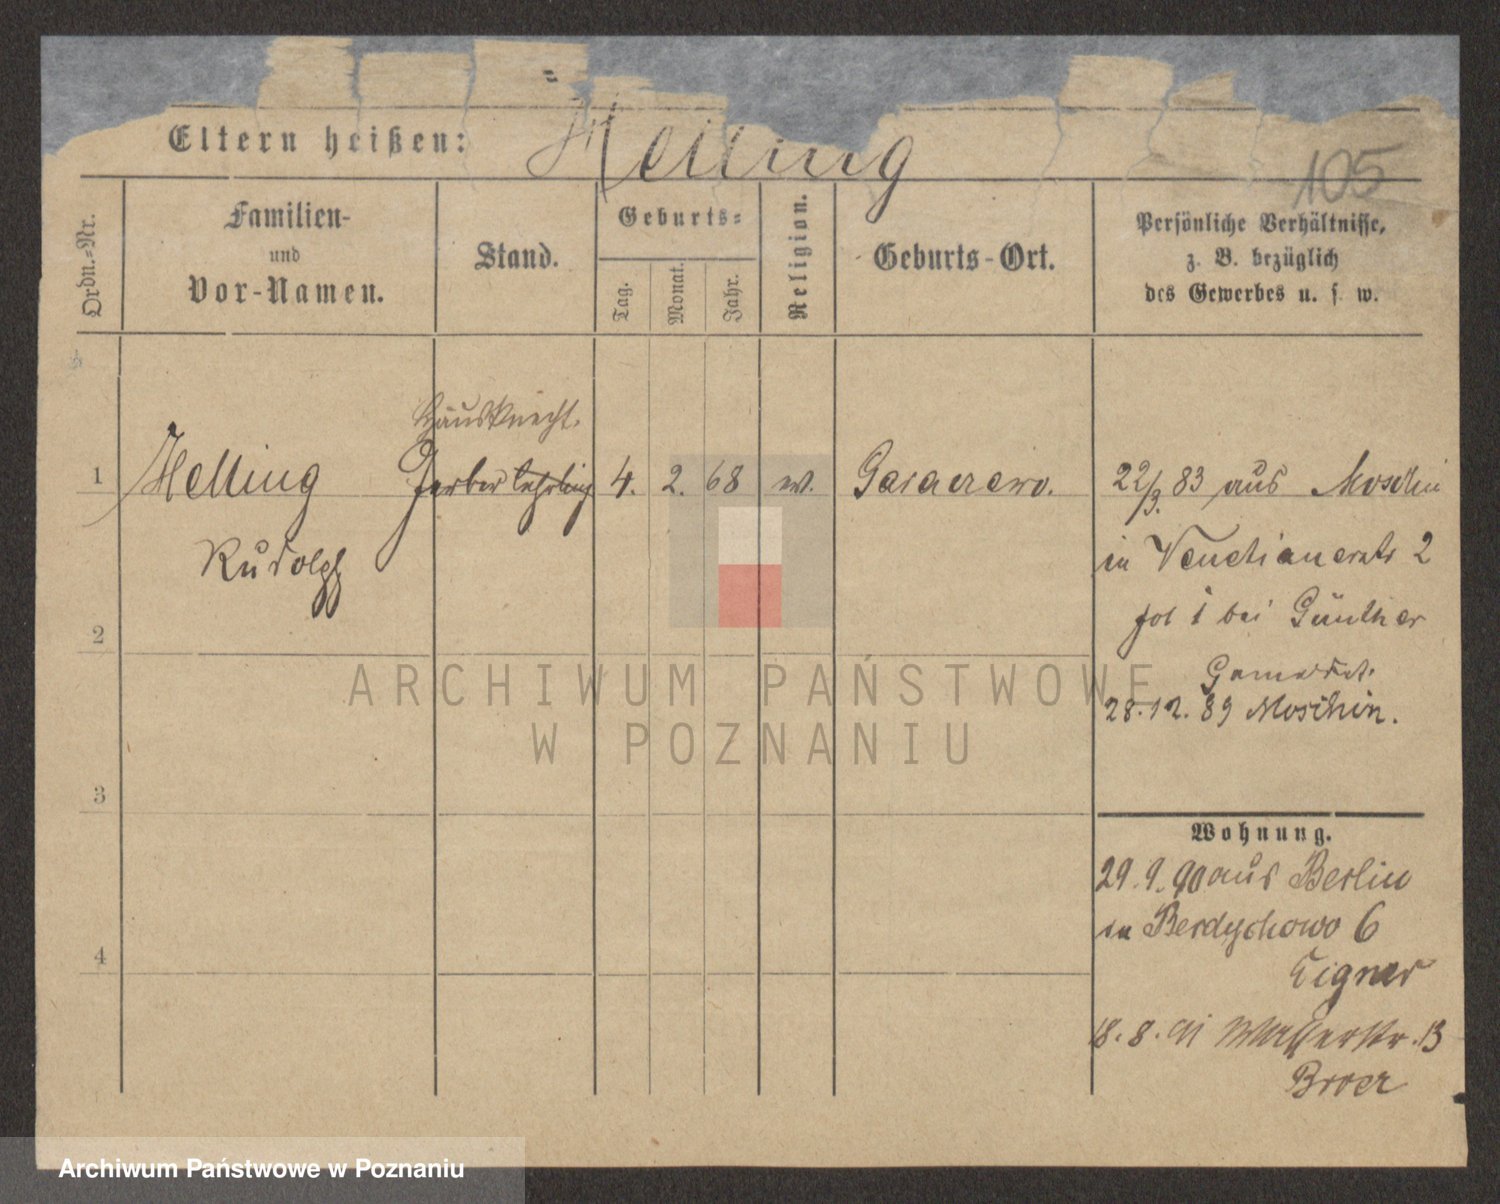 Eltern heißen: Helling
105
Ordn.-Nr.
Familien-
und
Vor-Namen.
Stand.
Geburts-
Tag.
Monat.
Jahr.
Religion.
Geburts-Ort.
Persönliche Verhältnisse,
z. B. bezüglich
des Gewerbes u. s. w.
Hausknecht.
1 Helling Färberlehrling 4. 2. 68 ev. 22/3. 83 aus Moschin
Rudolph
in Venetianerstr 2
bei Günther
28.12.89 Moschin.
2
3
4
Wohnung.
29.9.90 aus Berlin
in Berdychowo 6
Eigner
18.8.91 Wasserstr. 13
Broer
ARCHIWUM PAŃSTWOWE
W POZNANIU
Archiwum Państwowe w Poznaniu